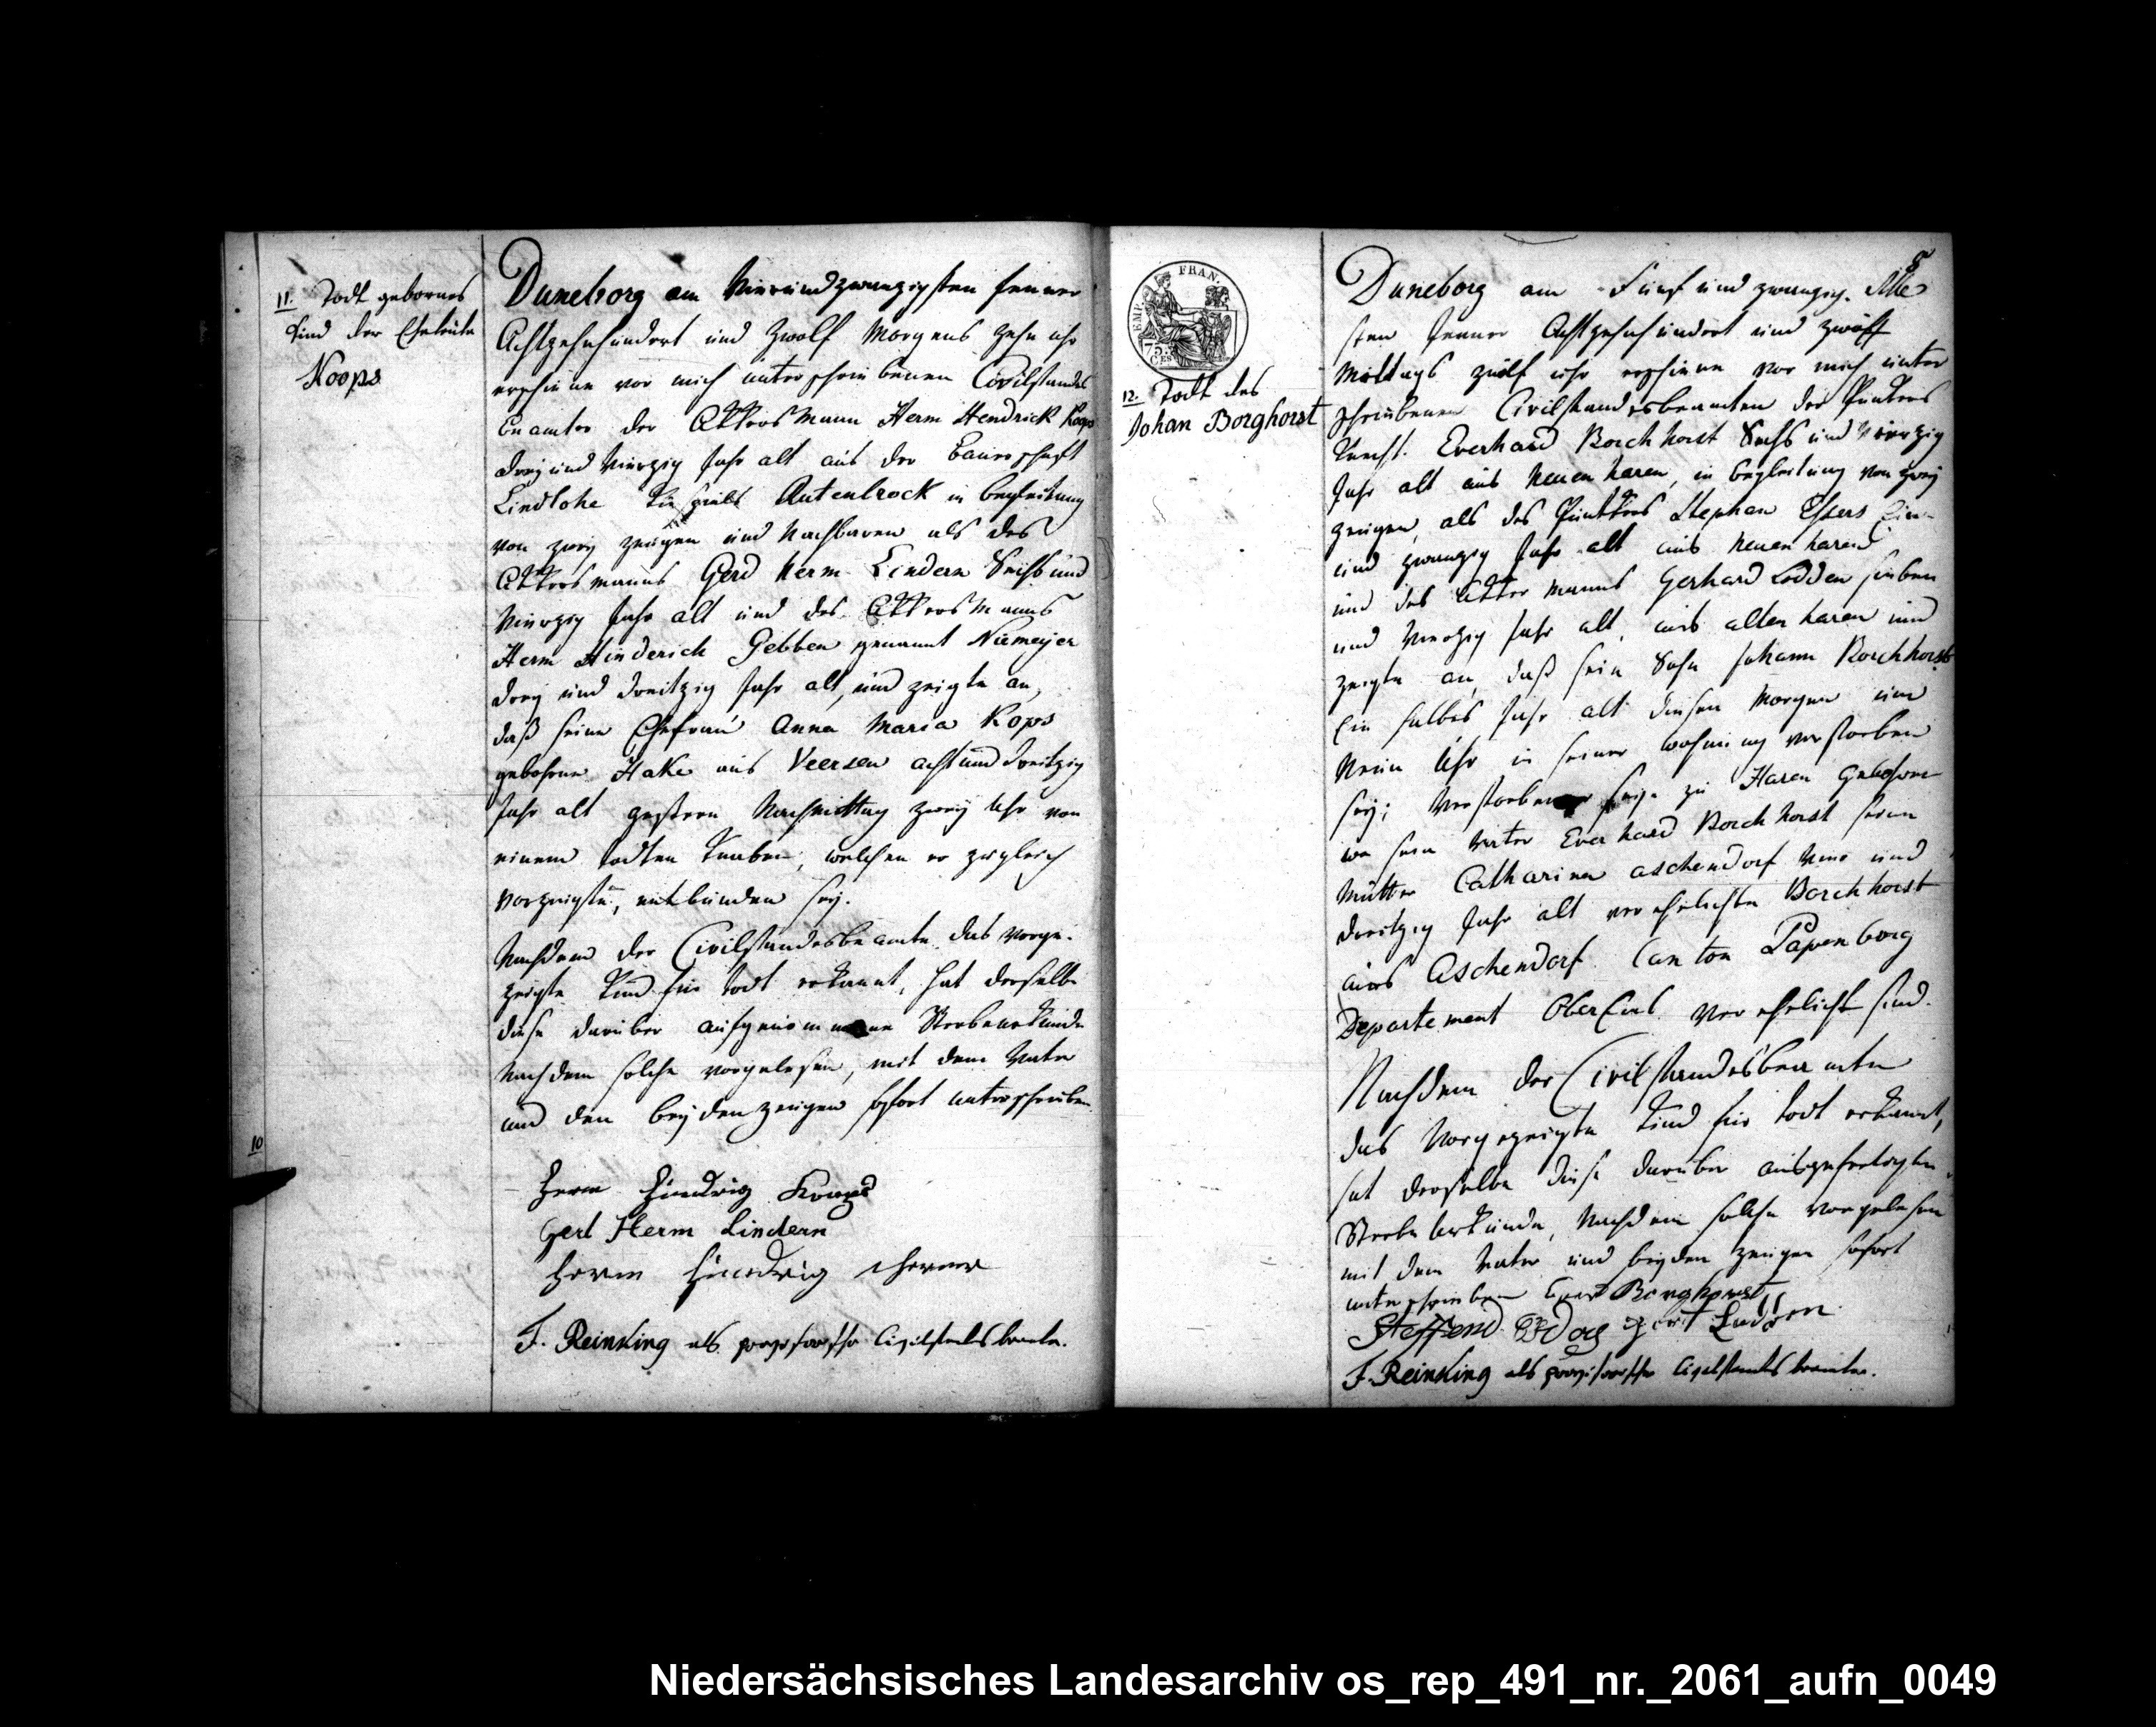 11. Todt gebornes
Kind der Eheleute
Koops
Duneborg am Vierundzwanzigsten Jenner
Achtzehnhundert und Zwolf Morgens Zehn uhr
erschiene vor mich unterschriebenen Civilstandes
beamter der Akkersmann Herm Hendrick Koops
drey und Vierzig Jahr alt aus der Bauerschaft
Lindlohe Kirspiels Rutenbrock in begleitung
von zwey zeugen und Nachbaren als des
Akkersmanns Gerd Herm Lindern Sechs und
Vierzig Jahr alt und des Akkersmanns
Herm Hinderich Gebben genannt Niemeijer
drey und dreitzig Jahr alt, und zeigte an,
daß seine Ehefrau Anna Maria Kops
gebohrne Hake aus Veersen acht und dreitzig
Jahr alt gestern Nachmittag zwey Uhr von
einem todten Knaben, welchen er zugleich
vorzeigte, entbunden sey.
Nachdem der Civilstandesbeamte das vorge-
zeigte Kind für todt erkannt, hat derselbe
diese darüber aufgenommene Sterbeurkunde
Nachdem solche vorgelesen, mit dem Vater
und den beyden zeugen sofort unterschrieben
Herm Hindrig Koops
Gerd Herm Lindern
Herm Hindrig
F. Reinking als provisorischer Civilstandsbeamte.
10
5
EMP. FRAN.
75. CES
12. Todt des
Johan Borghorst
Duneborg am Fünf und zwanzig-
sten Jenner Achtzehnhundert und zwölf
Mittags zwölf uhr erschiene vor mich unter
schriebenen Civilstandesbeamten der
Knecht. Everhard Borchhorst Sechs und Vierzig
Jahr alt aus Neuenharen, in begleitung von zwey
zeugen, als des Stephan Esders Ein
und zwanzig Jahr alt aus Neuenharen
und des Akkermanns Gerhard Lodden sieben
und Vierzig Jahr alt, aus alten haren und
zeigte an, daß sein Sohn Johann Borchhorst
Ein halbes Jahr alt diesen Morgen um
Neun Uhr in seiner wohnung verstorben
sey; Verstorbener seye zu Haren Gebohren
wo sein Vater Everhard Borchhorst seine
Mutter Catharina aschendorf Vier und
dreitzig Jahr alt verehelichte Borchhorst
aus Aschendorf Canton Papenborg
Departement OberEms Verehelicht sind.
Nachdem der Civilstandesbeamte
das Vorgezeigte Kind für todt erkannt,
hat derselbe diese darüber ausgefertigte
Sterbe Urkunde, Nachdem solche vorgelesen
mit dem Vater und beyden zeugen sofort
unterschrieben Evert Borghorst
Steffend Esders Gert Lodden
F. Reinking als provisorischer Civilstandsbeamte.
Niedersächsisches Landesarchiv os_rep_491_nr._2061_aufn_0049